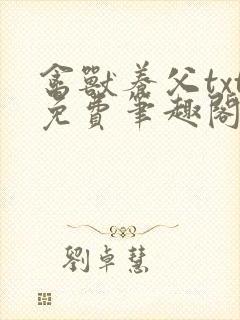 禽獸養父txt
免費筆趣閣
劉卓慧